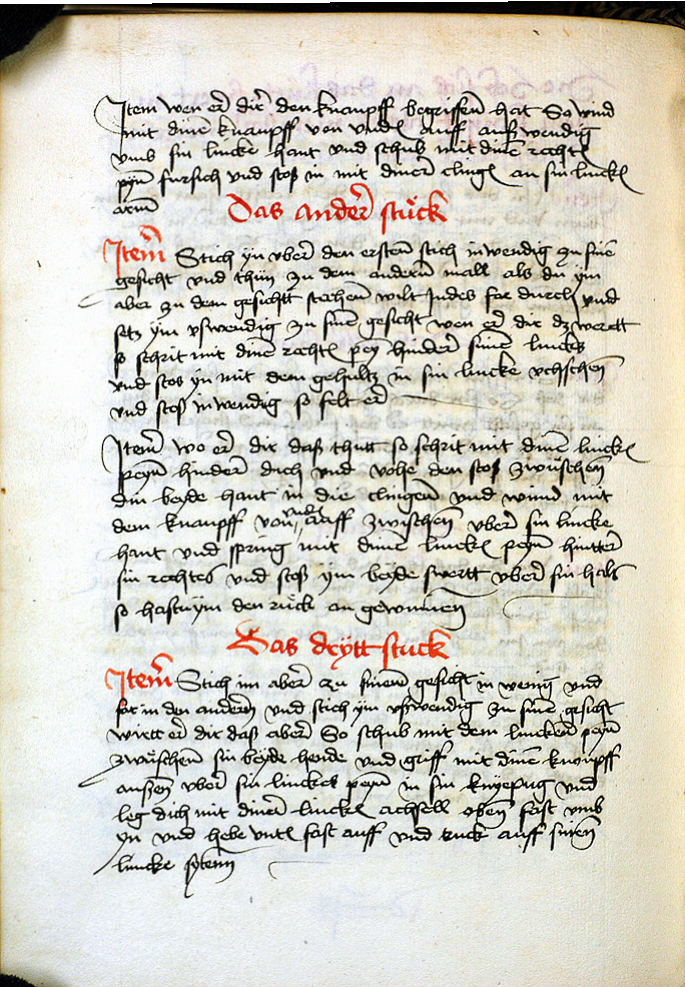 Item wen er dir den knaupff begriffen hat So wind
mit dinē knaupff von undē auff auß wendig
vmb sin lincke hant vnd schub mit dinē rechtē
peyn fürsich vnd stoß in mit diner clingē an sin linckē
arm
Das ander stuck
Item Stich yn vber den ersten stich inwendig zu sinē
gesicht vnd thun zu dem anderen mall als du ym
aber zu dem gesichtt stechenn wilt Indes far durch vnd
setz ym vswendig zu sinē gesicht wen er dir dz werett
so schrit mit dinē rechtē peyn hinder sinen lincks
vnd stos yn mit dem gehultz in sin lincke vchschen
vnd stoß inwendig so felt er
Item wo er dir daß thutt so schrit mit dinē linckē
peyn hinder dich vnd vohe den stoß zwuschen
din beyde hant in die clingen vnd wind mit
dem knaupff von undē auff zwischen vber sin lincke
hant vnd spring mit dinē linckē peyn hinter
sin rechtes vnd stoß ym beyde swertt vber sin hals
so hastu ym den ruck an gewunnen
Das drytt stuck
Item Stich im aber zu sinem gesicht in wenig vnd
far in den anderen vnd stich ym vswendig zu sinē gesicht
wertt er dir daß aber So schub mit dem lincken peyn
zwuschen sin beyde hende vnd griff mit dinē knoupff
aussen vber sin linckes peyn in sin knyepug vnd
leg dich mit diner linckē achsell oben fast vmb
yn vnd hebe vntē fast auff vnd ruck auff sinen
lincke syten